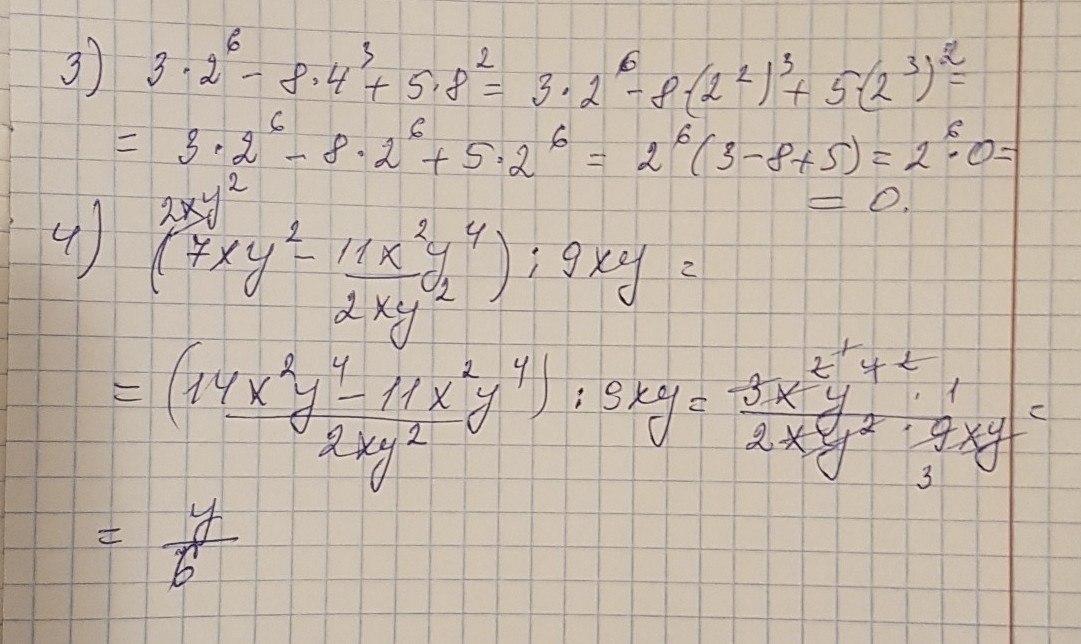 3) 3·2⁶ - 8·4³ + 5·8² = 3·2⁶ - 8·(2²)³ + 5·(2³)² =
= 3·2⁶ - 8·2⁶ + 5·2⁶ = 2⁶(3-8+5) = 2⁶·0 =
= 0.
2xy²
4) (7xy² - 11x²y⁴ / 2xy²) : 9xy =
= (14x²y⁴ - 11x²y⁴ / 2xy²) : 9xy = 3x²y⁴ · 1 / 2xy² · 9xy =
1 2
3
= y / 6